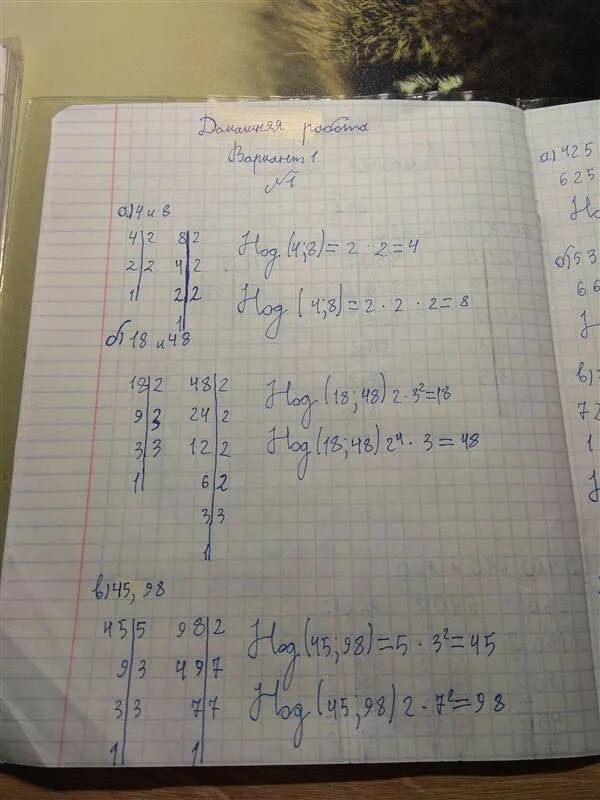 Домашняя работа
Вариант 1
№1
а) 4 и 8
4|2 8|2
2|2 4|2
1 2|2
1
Нод (4;8)=2·2=4
Нод (4;8)=2·2·2=8
б) 18 и 48
18|2 48|2
9|3 24|2
3|3 12|2
1 6|2
3|3
1
Нод (18;48) 2·3²=18
Нод (18;48) 2⁴·3=48
в) 45, 98
45|5 98|2
9|3 49|7
3|3 7|7
1 1
Нод (45;98)=5·3²=45
Нод (45;98) 2·7²=98
а) 425
625
б) 53
66
в)
72
1